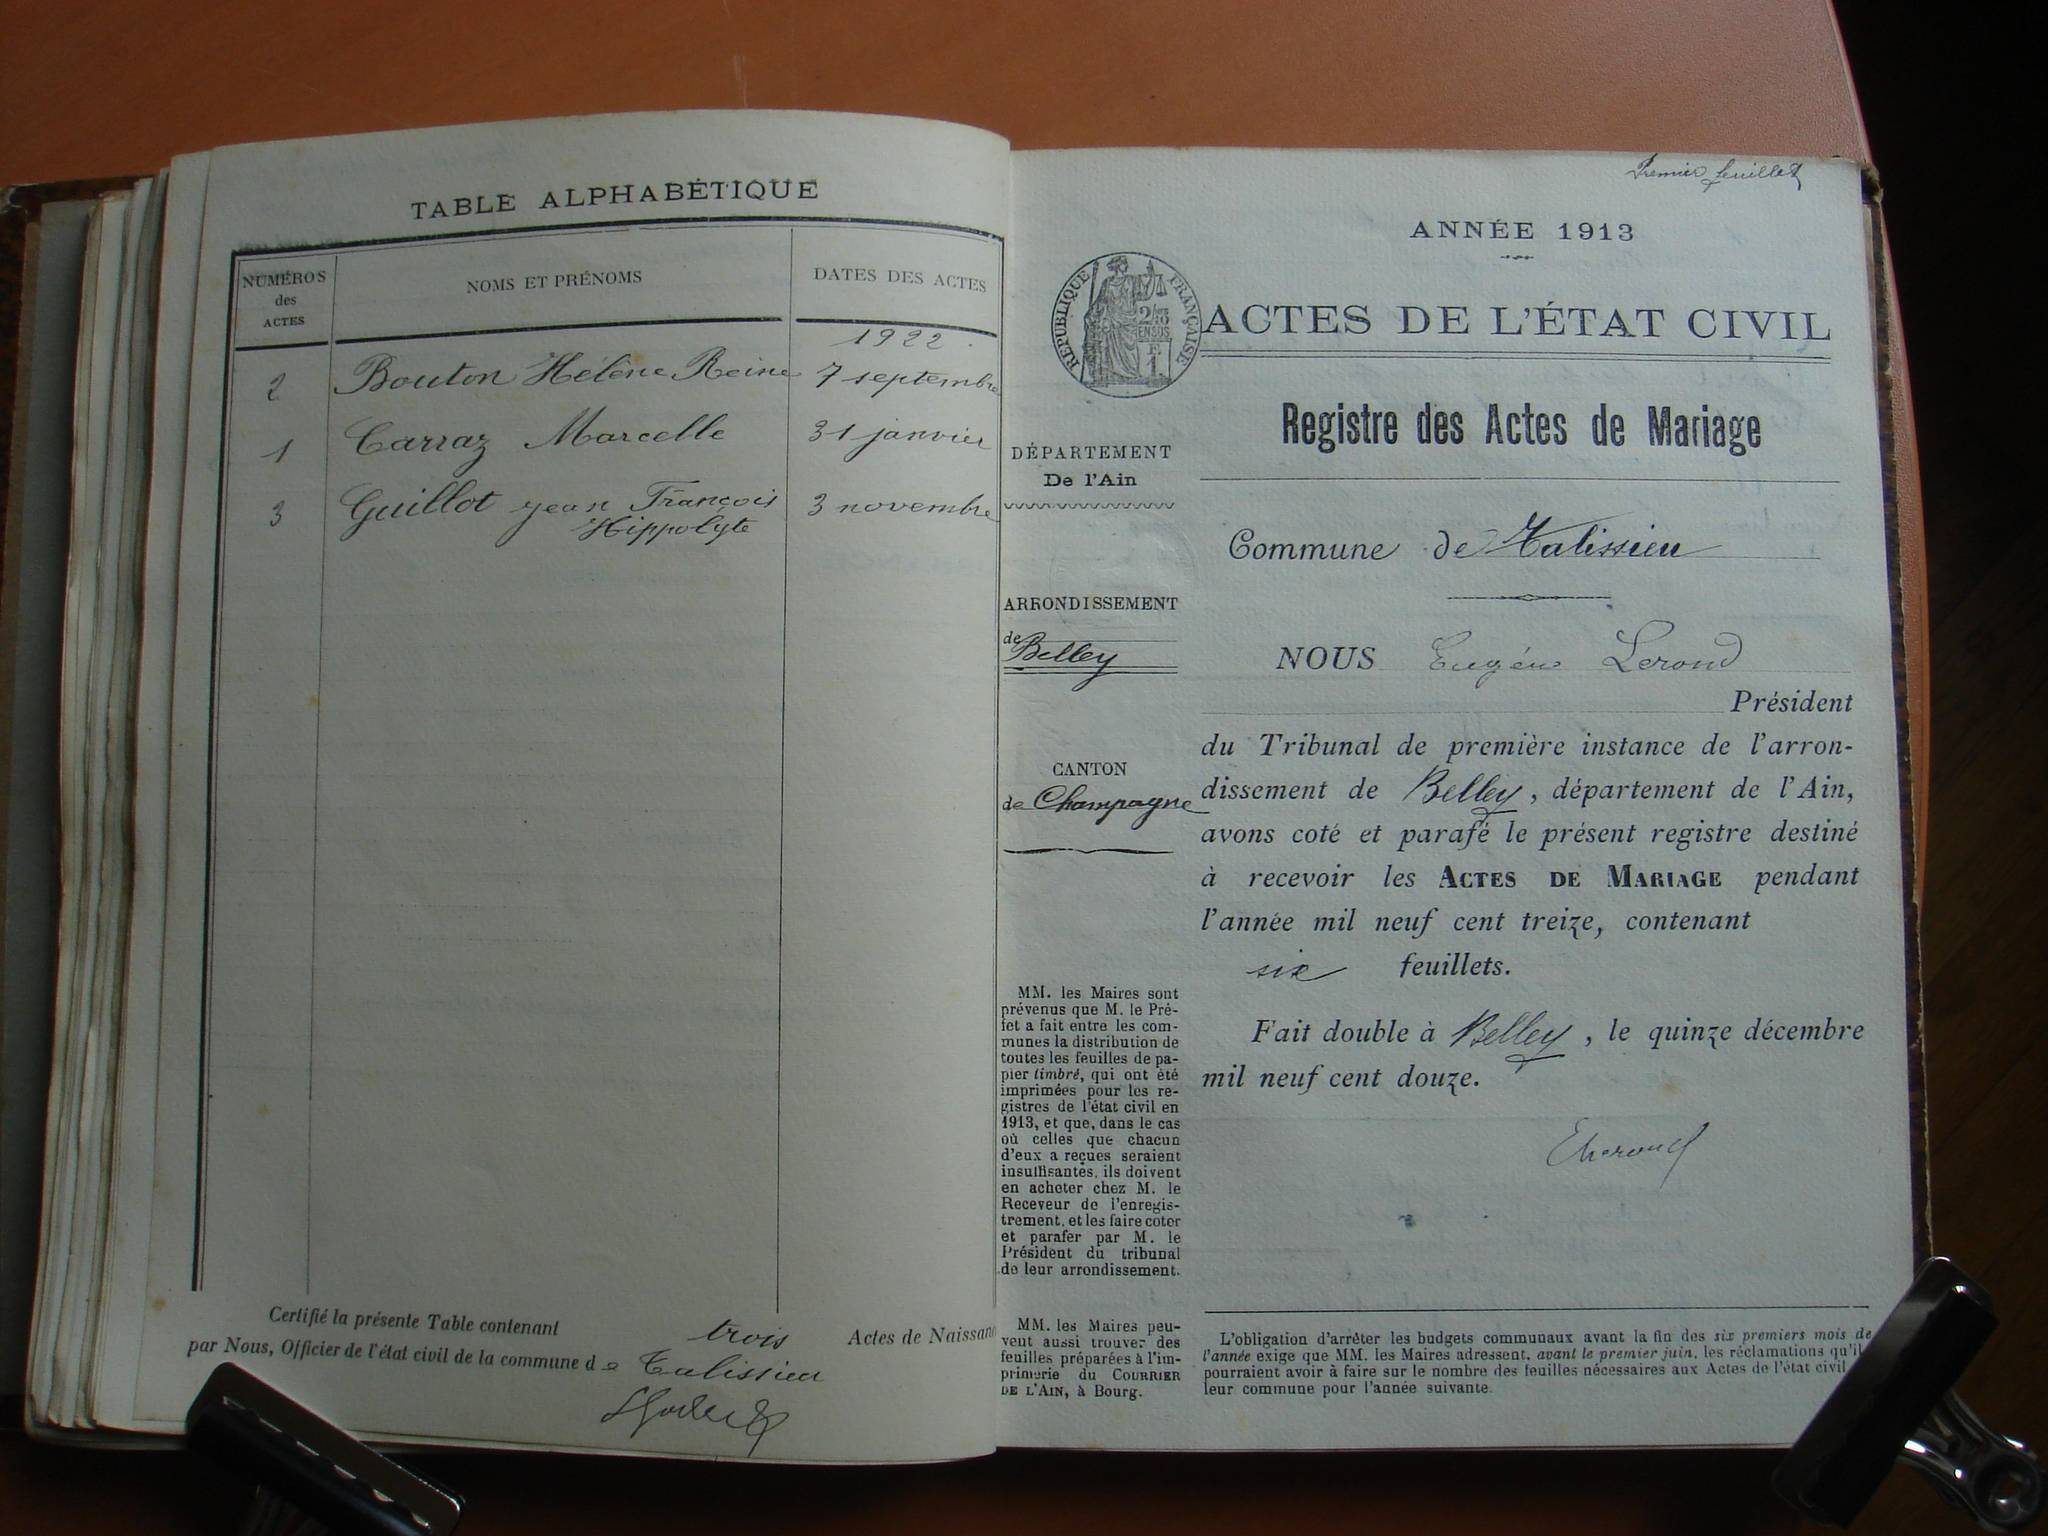 TABLE ALPHABÉTIQUE
NUMÉROS des ACTES
NOMS ET PRÉNOMS
DATES DES ACTES
1922
2 Bouton Hélène Reine 7 septembre
1 Carraz Marcelle 31 janvier
3 Guillot jean François 3 novembre
Hippolyte
Certifié la présente Table contenant trois Actes de Naissan
par Nous, Officier de l'état civil de la commune de Talissieu
Premier feuillet
ANNÉE 1913
RÉPUBLIQUE FRANÇAISE
ACTES DE L'ÉTAT CIVIL
Registre des Actes de Mariage
DÉPARTEMENT
De l'Ain
Commune de Talissieu
ARRONDISSEMENT
de Belley
CANTON
de Champagne
NOUS Eugène Lerond
Président
du Tribunal de première instance de l'arron-
dissement de Belley, département de l'Ain,
avons coté et parafé le présent registre destiné
à recevoir les ACTES DE MARIAGE pendant
l'année mil neuf cent treize, contenant
six feuillets.
Fait double à Belley, le quinze décembre
mil neuf cent douze.
MM. les Maires sont
prévenus que M. le Pré-
fet a fait entre les com-
munes la distribution de
toutes les feuilles de pa-
pier timbré, qui ont été
imprimées pour les re-
gistres de l'état civil en
1913, et que, dans le cas
où celles que chacun
d'eux a reçues seraient
insuffisantes, ils doivent
en acheter chez M. le
Receveur de l'enregis-
trement, et les faire coter
et parafer par M. le
Président du tribunal
de leur arrondissement.
MM. les Maires peu-
vent aussi trouver des
feuilles préparées à l'im-
primerie du COURRIER
DE L'AIN, à Bourg.
L'obligation d'arrêter les budgets communaux avant la fin des six premiers mois de
l'année exige que MM. les Maires adressent, avant le premier juin, les réclamations qu'il
pourraient avoir à faire sur le nombre des feuilles nécessaires aux Actes de l'état civil
leur commune pour l'année suivante.